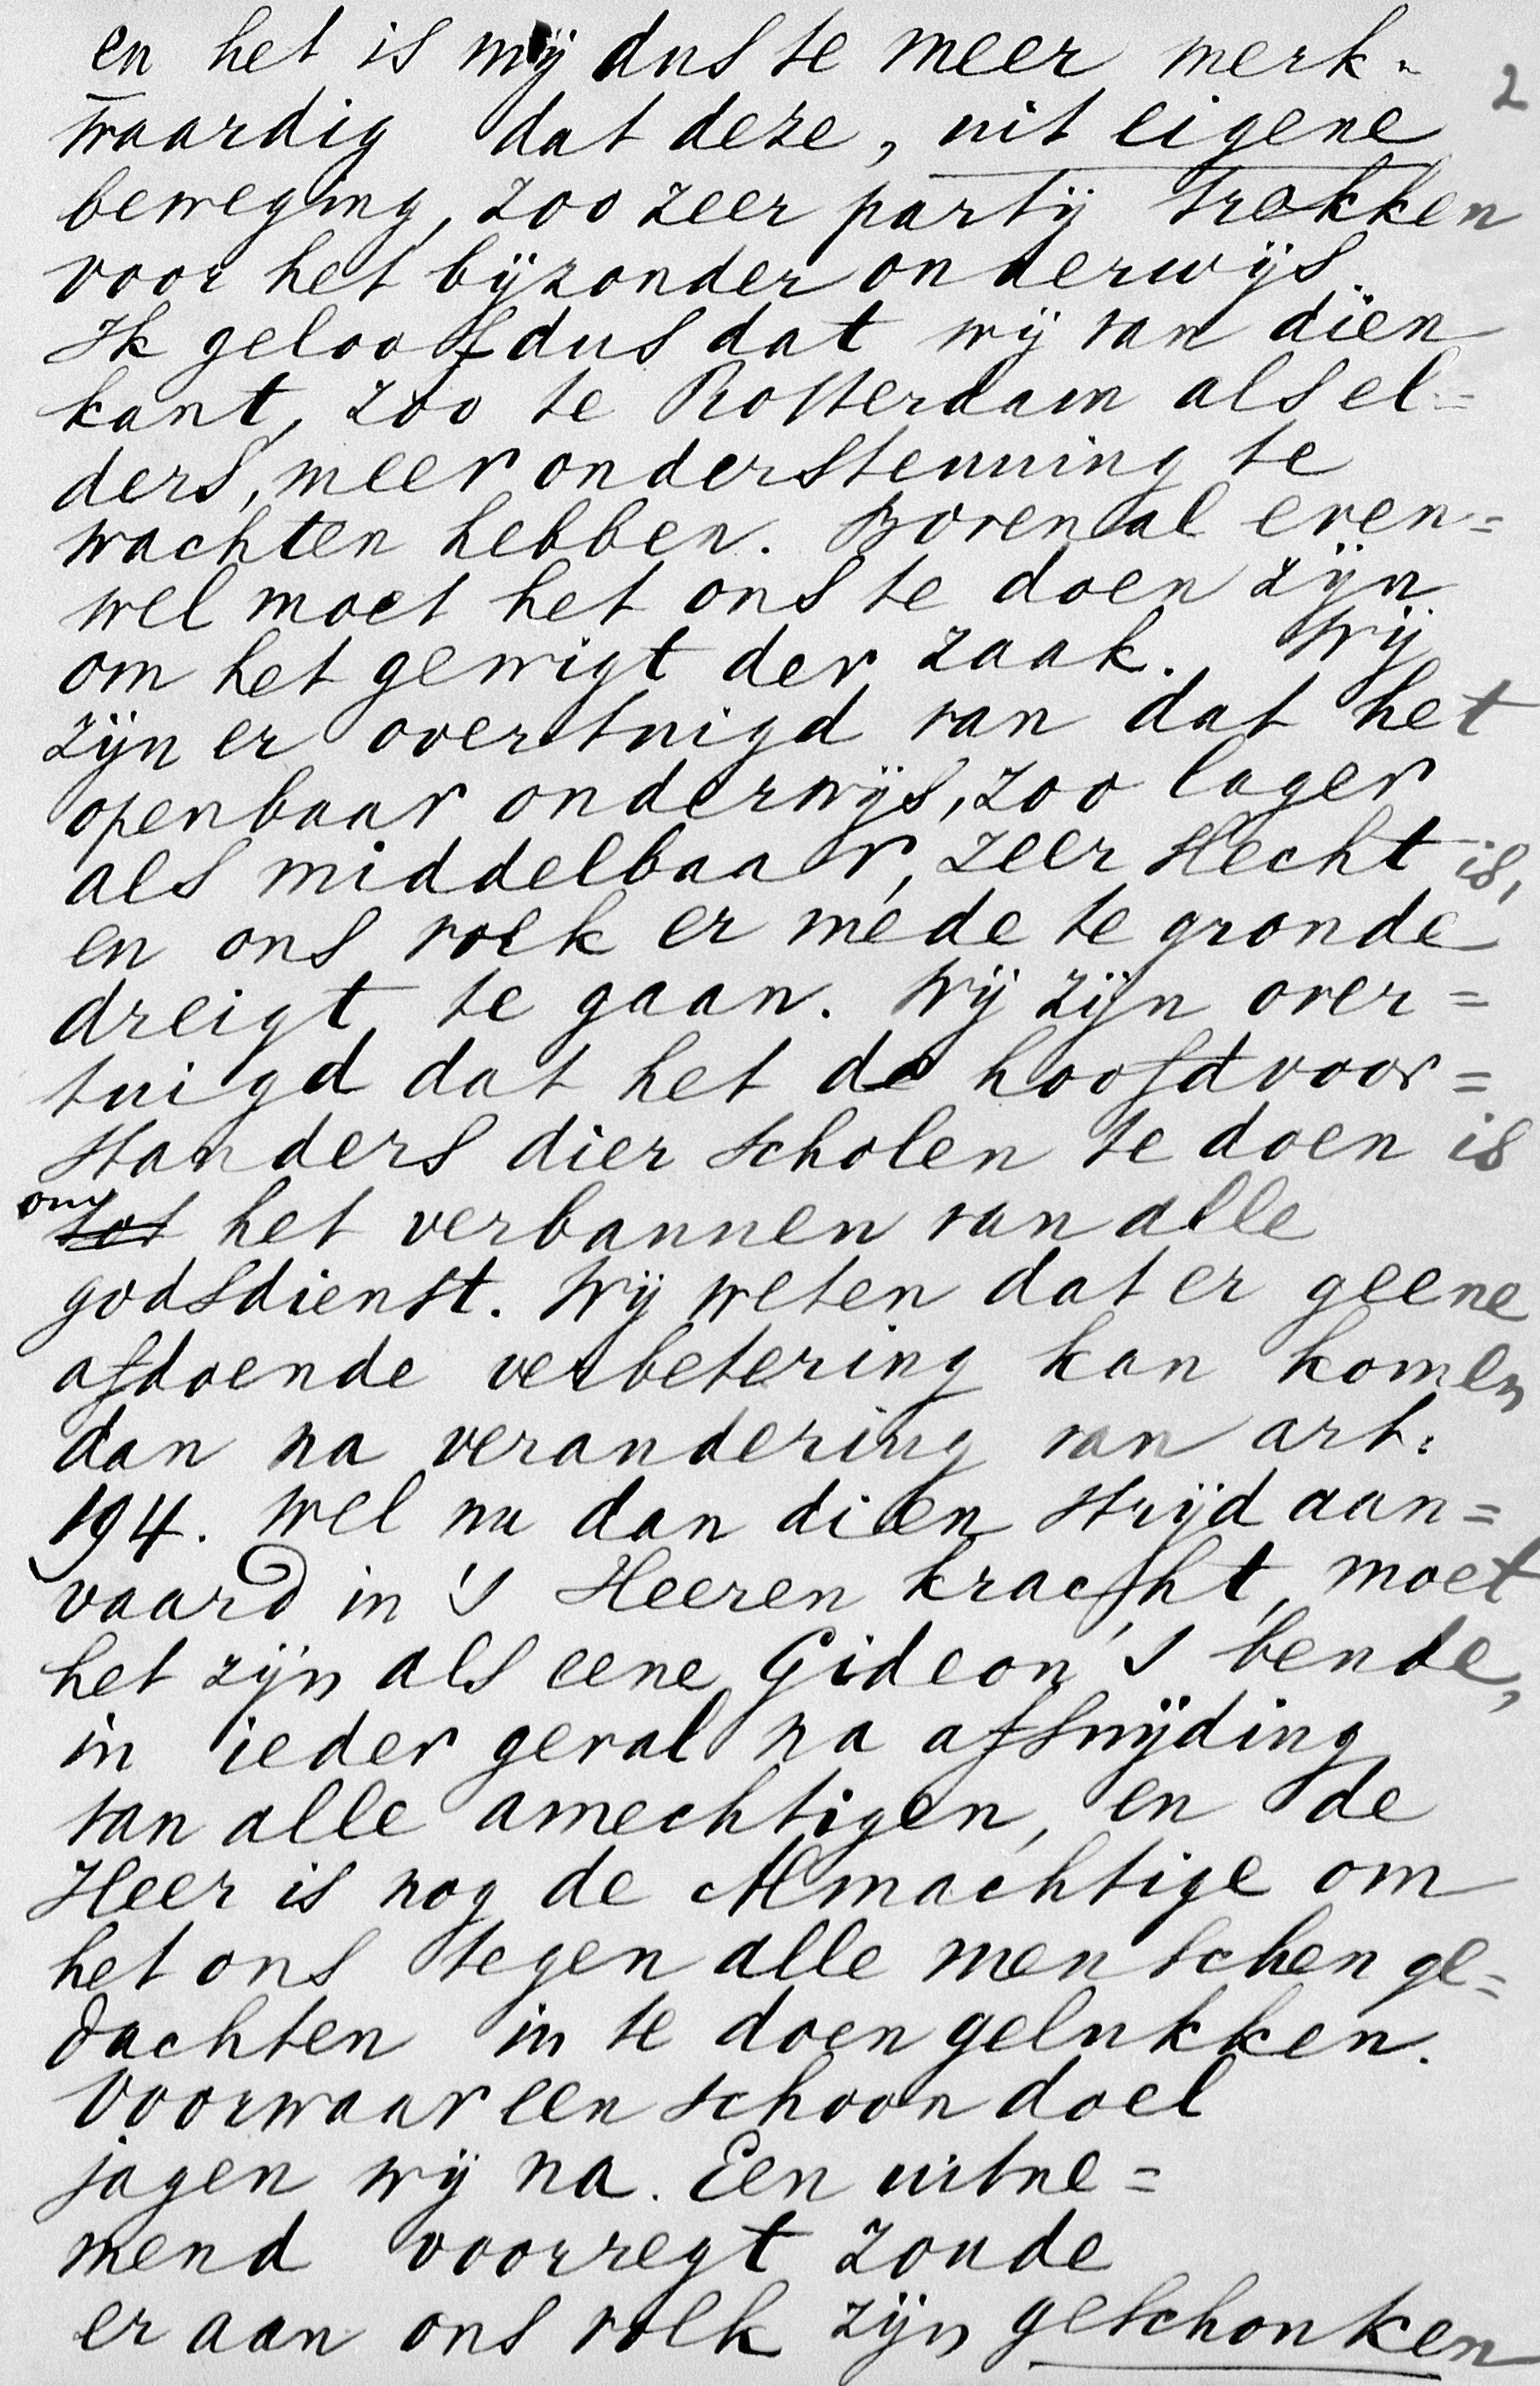 en het is mij dus te meer merk-
2
waardig dat deze, uit eigene
beweging, zoo zeer partij trekken
voor het bijzonder onderwijs.
Ik geloof dus dat wij van dien
kant, zoo te Rotterdam als el=
ders, meer ondersteuning te
wachten hebben. Bovenal even=
wel moet het ons te doen zijn
om het gewigt der zaak. Wij
zijn er overtuigd van dat het
openbaar onderwijs, zoo lager
als middelbaar, zeer slecht is,
en ons volk er mede te gronde
dreigt te gaan. Wij zijn over=
tuigd dat het de hoofdvoor=
standers dier scholen te doen is
om
tot het verbannen van alle
godsdienst. Wij weten dat er geene
afdoende verbetering kan komen
dan na verandering van art.
194. Wel nu dan dien strijd aan=
vaard in 's Heeren kracht, moet
het zijn als eene Gideon's bende,
in ieder geval na afsnijding
van alle amechtigen, en de
Heer is nog de Almachtige om
het ons tegen alle menschen ge=
dachten in te doen gelukken.
Voorwaar een schoon doel
jagen wij na. Een uitne=
mend voorregt zoude
er aan ons volk zijn geschonken